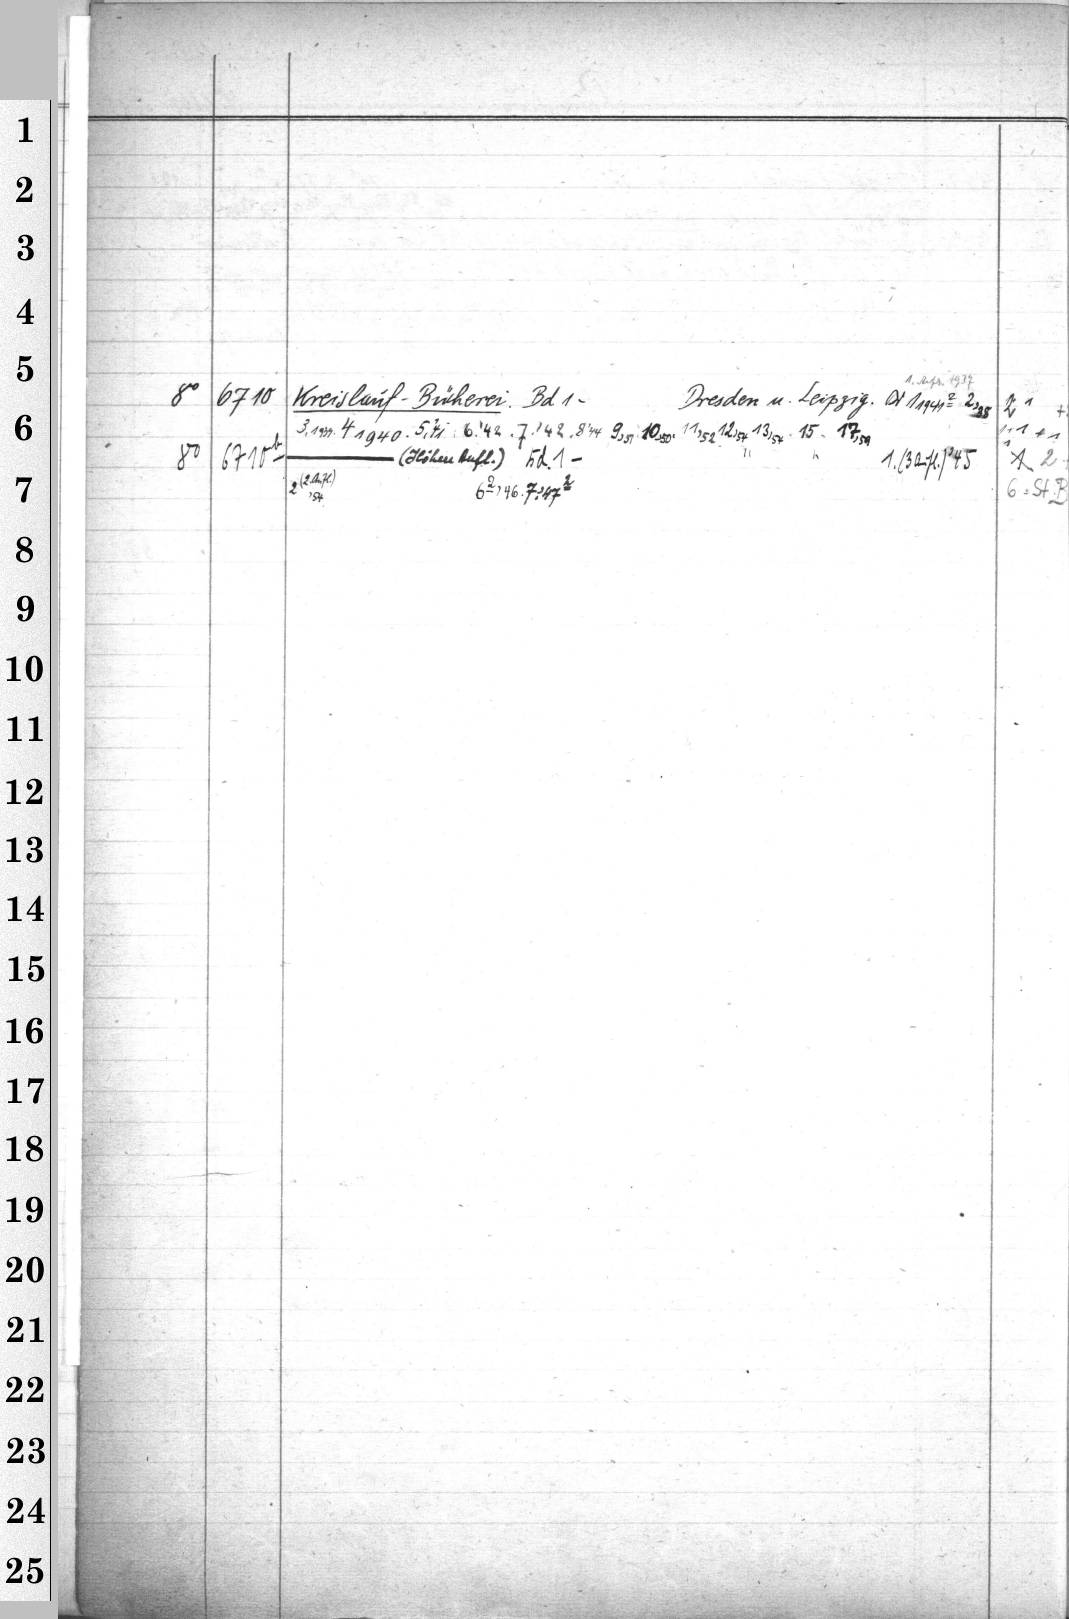 1
2
3
4
5
1. Aufl. 1937
8° 6710 Kreislauf-Bücherei. Bd 1- Dresden u. Leipzig. 1 1941² 2,38 2 1
6
3,1939. 4 1940. 5,'41. 6.'42. 7.'42. 8'44 9,51 10,50. 11,52 12,54 13,54 15. 17,59 1 + 1
8° 6710b — (Höhere Aufl.) Bd. 1- " " 1.(3 Aufl.)'45 2
7
2 (2. Aufl.) ,54 6²,46. 7,'47² 6 = St.B
8
9
10
11
12
13
14
15
16
17
18
19
20
21
22
23
24
25